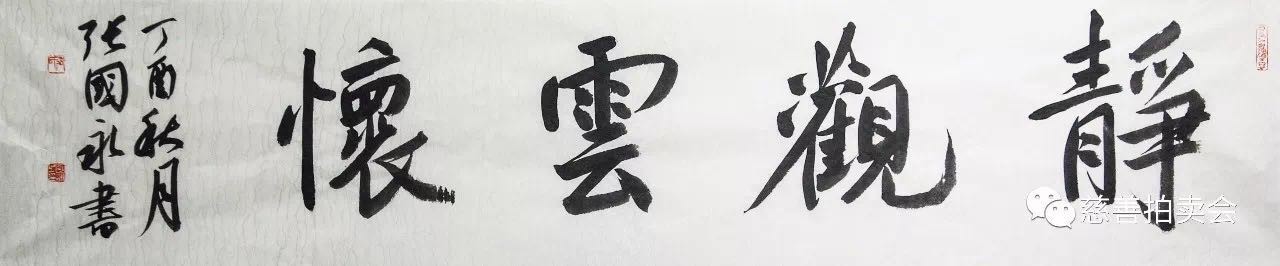 靜觀雲懷
丁酉秋月
张國永書
慈善拍卖会